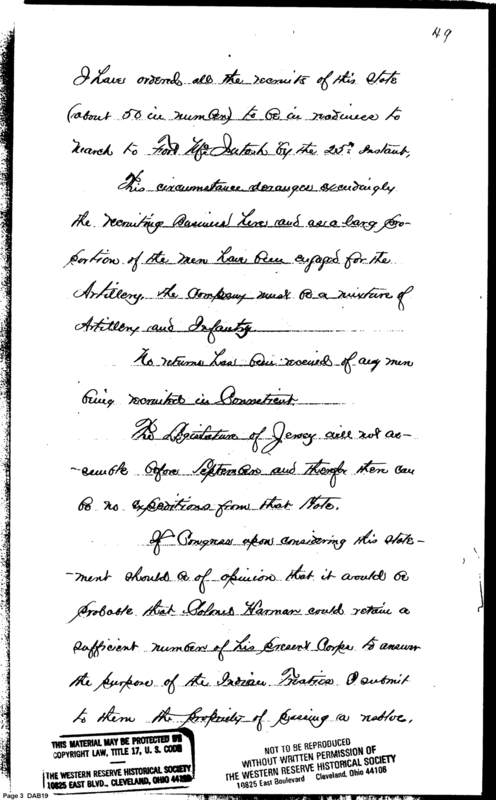 49
I have ordered all the recruits of this State
(about 50 in number) to be in readiness to
march to Fort McIntosh by the 25th Instant.
This circumstance deranges exceedingly
the recruiting business here and as a larg pro-
portion of the men have been engaged for the
Artillery, the Company must be a mixture of
Artillery and Infantry.
No returns has been received of any men
being recruited in Connecticut.
The Legislature of Jersey will not as-
-semble before September and therefor there can
be no expeditions from that State.
If Congress upon considering this state-
-ment should be of opinion that it would be
probable that Colonel Harman could retain a
sufficient number of his present Corps to answer
the purpose of the Indian Treaties I submit
to them the propriety of passing a resolve,
THIS MATERIAL MAY BE PROTECTED BY
COPYRIGHT LAW, TITLE 17, U. S. CODE
THE WESTERN RESERVE HISTORICAL SOCIETY
10825 EAST BLVD., CLEVELAND, OHIO 44106
NOT TO BE REPRODUCED
WITHOUT WRITTEN PERMISSION OF
THE WESTERN RESERVE HISTORICAL SOCIETY
10825 East Boulevard Cleveland, Ohio 44106
Page 3 DAB19